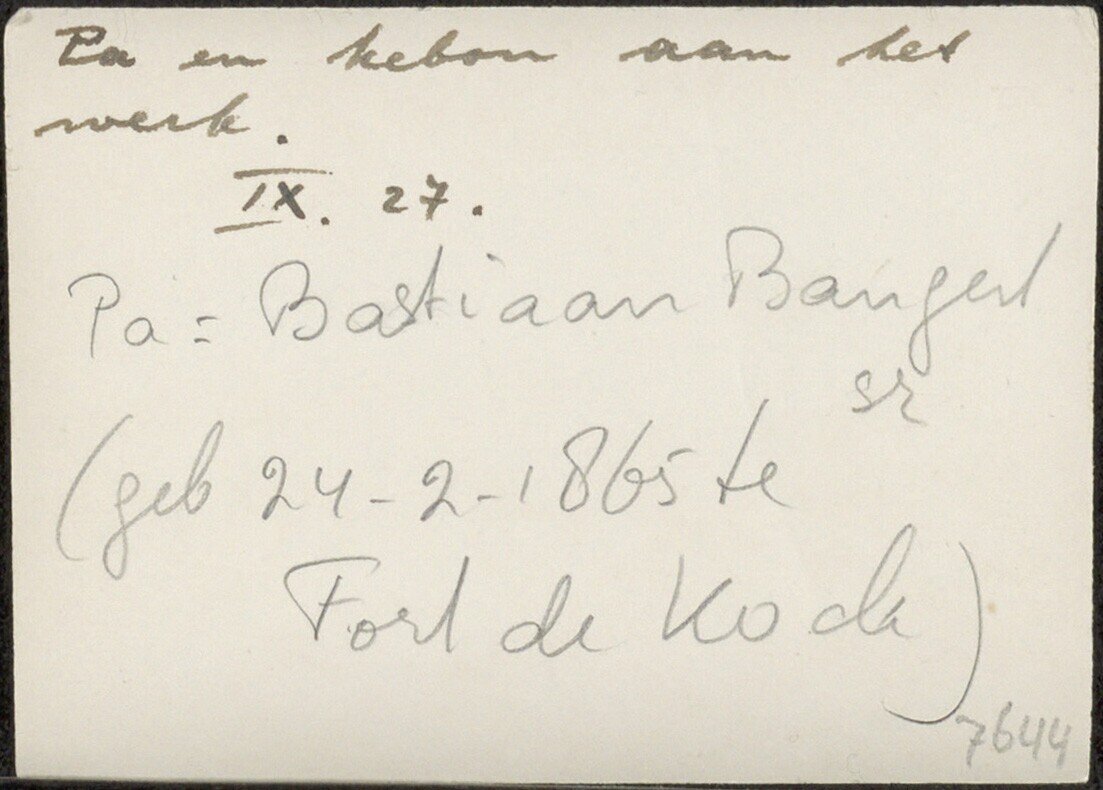 Pa en kebon aan het
werk.
IX. 27.
Pa = Bastiaan Bangert
sr
(geb 24-2-1865 te
Fort de Kock)
7644